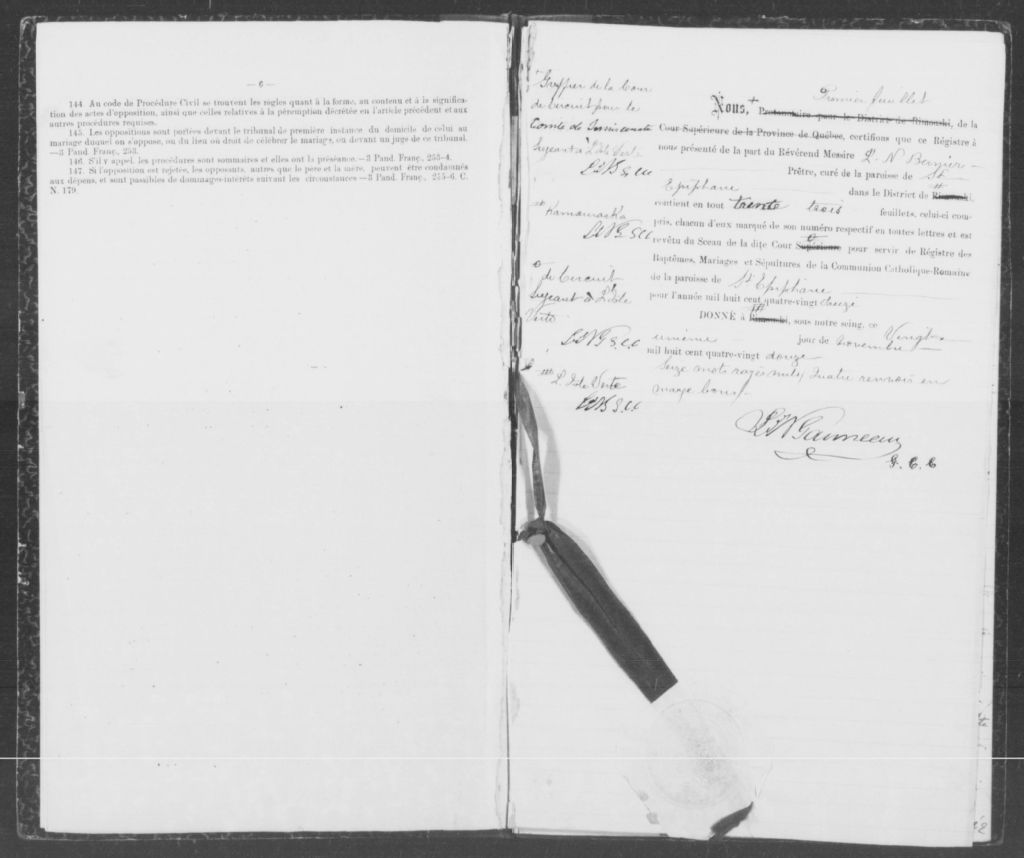 — 6 —
144 Au code de Procédure Civil se trouvent les règles quant à la forme, au contenu et à la significa-
tion des actes d'opposition, ainsi que celles relatives à la péremption décrétée en l'article précédent et aux
autres procédures requises.
145. Les oppositions sont portées devant le tribunal de première instance du domicile de celui au
mariage duquel on s'oppose, ou du lieu où doit de célébrer le mariage, ou devant un juge de ce tribunal.
—3 Pand. Franç., 253.
146. S'il y appel, les procédures sont sommaires et elles ont la préséance.—3 Pand. Franç. 253-4.
147. Si l'opposition est rejetée, les opposants, autres que le père et la mère, peuvent être condamnés
aux dépens, et sont passibles de dommages-intérêts suivant les circonstances—3 Pand. Franç., 255-6. C.
N. 179.
Greffier de la Cour
de Circuit pour le
Comté de Temiscouata
Siégeant à L'Isle Verte
LNG G.C.C
Kamouraska
LNG G.C.C
de Circuit
Siégeant à L'Isle
Verte
LNG G.C.C
L'Isle Verte
LNG G.C.C
Premier feuillet
Nous, Protonotaire pour le District de Rimouski, de la
Cour Supérieure de la Province de Québec, certifions que ce Régistre à
nous présenté de la part du Révérend Messire L. N Bernier
Prêtre, curé de la paroisse de St
Epiphane dans le District de Rimouski,
contient en tout trente trois feuillets, celui-ci com-
pris, chacun d'eux marqué de son numéro respectif en toutes lettres et est
revêtu du Sceau de la dite Cour Supérieure pour servir de Régistre des
Baptêmes, Mariages et Sépultures de la Communion Catholique-Romaine
de la paroisse de St Epiphane
pour l'année mil huit cent quatre-vingt treize
DONNÉ à Rimouski, sous notre seing, ce Vingt
unième jour de Novembre
mil huit cent quatre-vingt douze
Seize mots rayés nuls, Quatre renvois en
marge bons
LN Gauvreau
G. C. C